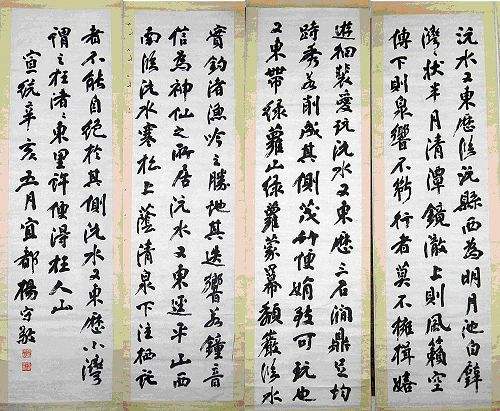 沅水又東歷臨沅縣西為明月池白璧
灣〻狀半月清潭鏡澈上則風籟空
傳下則泉響不斷行者莫不擁楫嬉
遊徊裴愛玩沅水又東歷三石澗鼎足均
跱秀若削成其側茂竹便娟致可玩也
又東帶綠蘿山綠蘿蒙冪頹巖臨水
實釣渚漁吟之勝地其迭響若鐘音
信為神仙之所居沅水又東逕平山西
南臨沅水寒松上蔭清泉下注栖託
者不能自絕於其側沅水又東歷小灣
謂之枉渚〻東里許便得枉人山
宣統辛亥五月宜都楊守敬